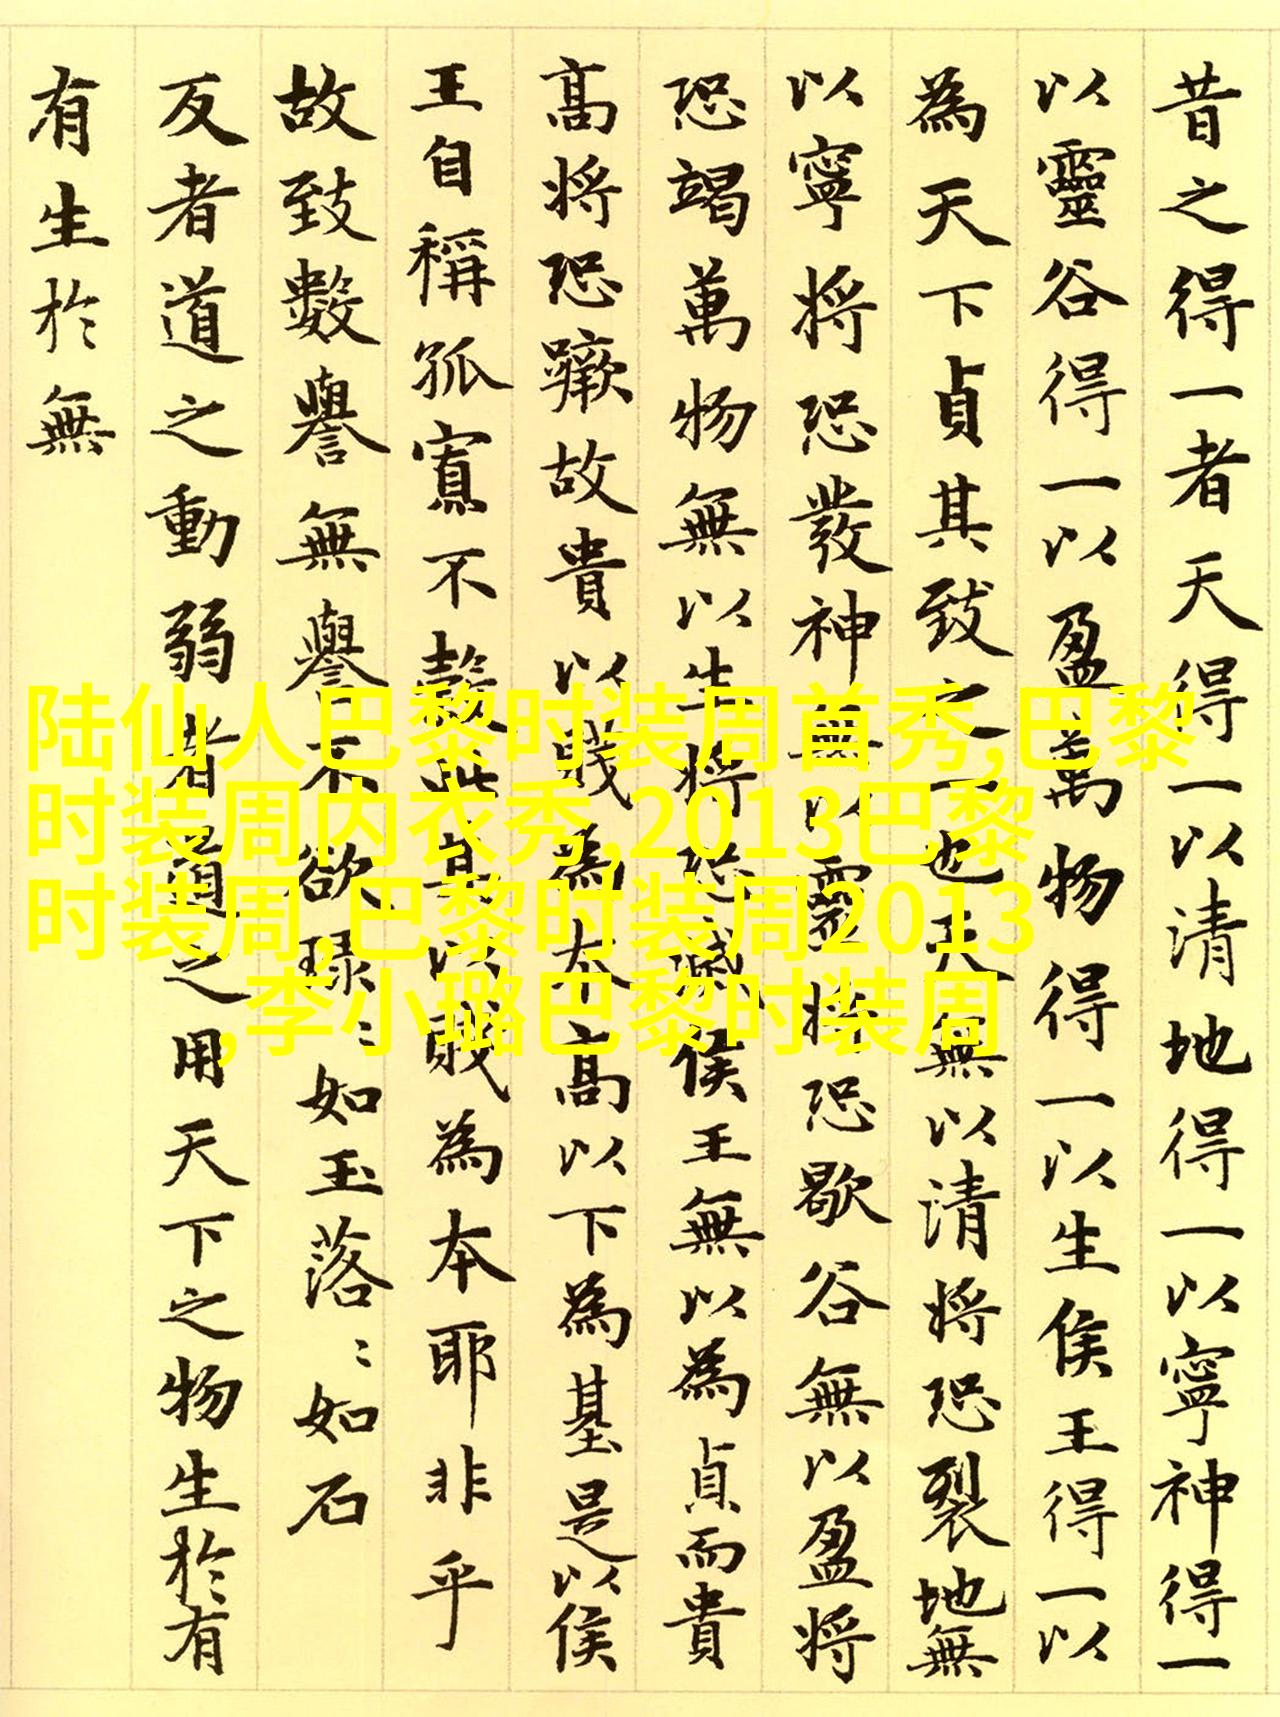 昔之得一者天得一以清地得一以寧神得一
以靈谷得一以盈萬物得一以生侯王得一以
為天下貞其致之一也天無以清將恐裂地無
以寧將恐發神無以靈將恐歇谷無以盈將
恐竭萬物無以生將恐滅侯王無以為貞而貴
高將恐蹶故貴以賤為本高以下為基是以侯
王自稱孤寡不穀此其以賤為本耶非乎
故致數譽無譽不欲琭〻如玉落〻如石
反者道之動弱者道之用天下之物生於有
有生於無
陆仙人巴黎时装周首秀,巴黎
时装周内衣秀,2013巴黎
时装周,巴黎时装周2013
,李小璐巴黎时装周